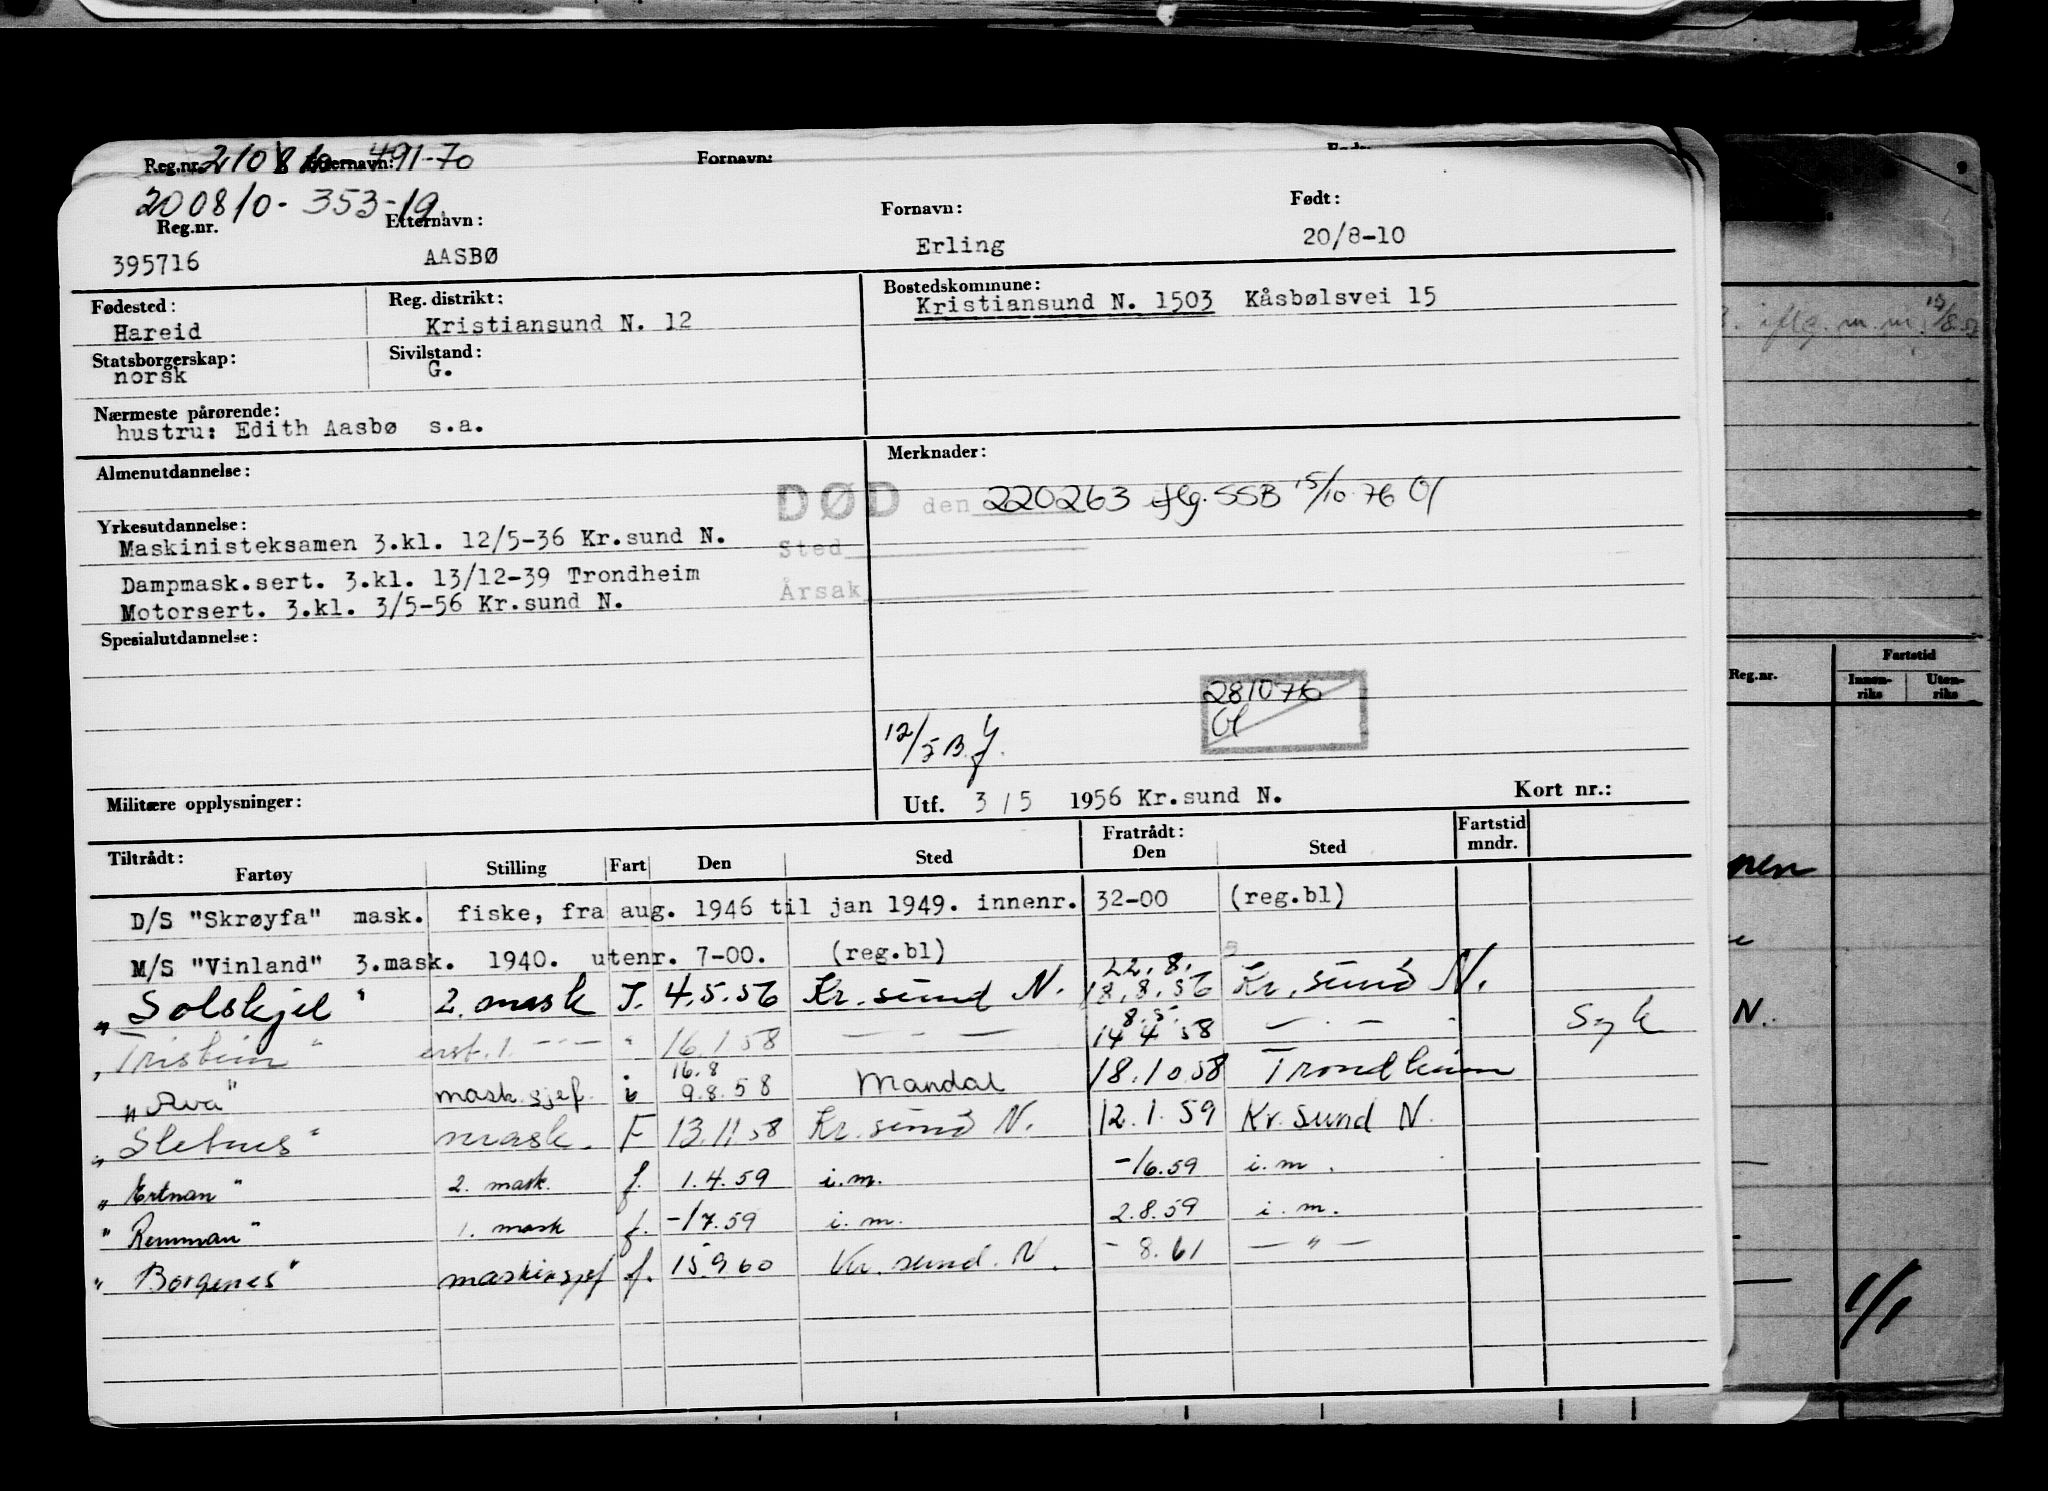 Reg.nr. 210810-491-70 Etternavn: Fornavn:
200810-353-19
Reg.nr. Etternavn: Fornavn: Født:
395716 AASBØ Erling 20/8-10
Fødested: Reg. distrikt: Bostedskommune:
Hareid Kristiansund N. 12 Kristiansund N. 1503 Kåsbølsvei 15
Statsborgerskap: Sivilstand:
norsk G.
Nærmeste pårørende:
hustru: Edith Aasbø s.a.
Almenutdannelse: Merknader:
DØD den 220263 iflg. SSB 15/10 76 Ol
Yrkesutdannelse:
Maskinisteksamen 3.kl. 12/5-36 Kr.sund N. Sted
Dampmask.sert. 3.kl. 13/12-39 Trondheim Årsak
Motorsert. 3.kl. 3/5-56 Kr.sund N.
Spesialutdannelse:
281076
Ol
12/5 B.
Militære opplysninger: Utf. 3/5 1956 Kr.sund N. Kort nr.:
Tiltrådt: Fratrådt: Fartstid
Fartøy Stilling Fart Den Sted Den Sted mndr.
D/S "Skrøyfa" mask. fiske, fra aug. 1946 til jan 1949. innenr. 32-00 (reg.bl)
M/S "Vinland" 3.mask. 1940. utenr. 7-00. (reg.bl)
22.8.
" Solskjel " 2. mask J. 4.5.56 Kr.sund N. 18.8.56 Kr.sund N.
8.5.
" Tristein " 1. — " — " 16.1.58 — — — 14 4 58 — . — . Syk
16.8
" Ava " mask.sjef. i 9.8.58 Mandal 18.10.58 Trondheim
" Sletnes " mask. F 13.11.58 Kr.sund N. 12.1.59 Kr.sund N.
" Ertnan " 2. mask. f. 1.4.59 i.m. -/6.59 i.m.
" Remman " 1. mask f. -/7.59 i.m. 2.8.59 i.m.
" Borgenes " maskinsjef f. 15.9.60 Kr.sund.N. - 8.61 — " —
iflg. m.m.
Fartstid
Reg.nr. Innen-riks Uten-riks
N.
1/1